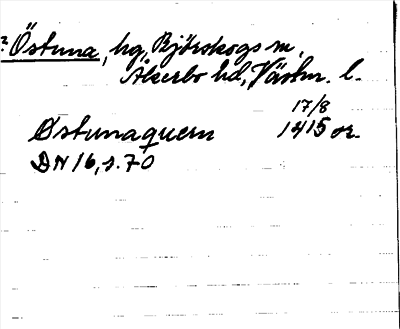 ? Östuna, hg, Björskogs sn,
Åkerbo hd, Västm. l.
17/8
Østunaquern 1415 or.
DN 16, s. 70